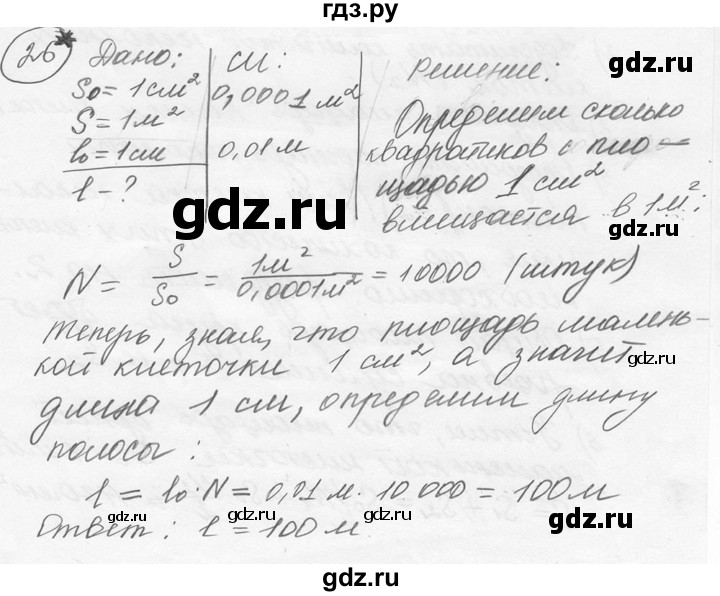 гдз.ру
26* Дано: СИ: Решение:
S₀ = 1 см² 0,0001 м²
S = 1 м²
l₀ = 1 см 0,01 м
l - ?
Определим сколько
квадратиков с пло-
щадью 1 см²
вмещается в 1 м²:
gdz.ru
N = S/S₀ = 1 м²/0,0001 м² = 10000 (штук)
Теперь, зная, что площадь малень-
кой клеточки 1 см², а значит
длина 1 см, определим длину
полосы:
l = l₀ · N = 0,01 м · 10 000 = 100 м
Ответ: l = 100 м.
gdz.ru
gdz.ru